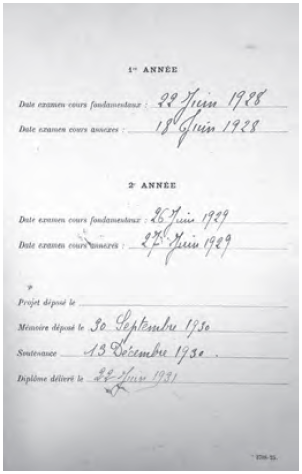 1re ANNÉE
Date examen cours fondamentaux : 22 Juin 1928
Date examen cours annexes : 18 Juin 1928
2e ANNÉE
Date examen cours fondamentaux : 26 Juin 1929
Date examen cours annexes : 27 Juin 1929
Projet déposé le
Mémoire déposé le 30 Septembre 1930
Soutenance 13 Décembre 1930.
Diplôme délivré le 22 Juin 1931